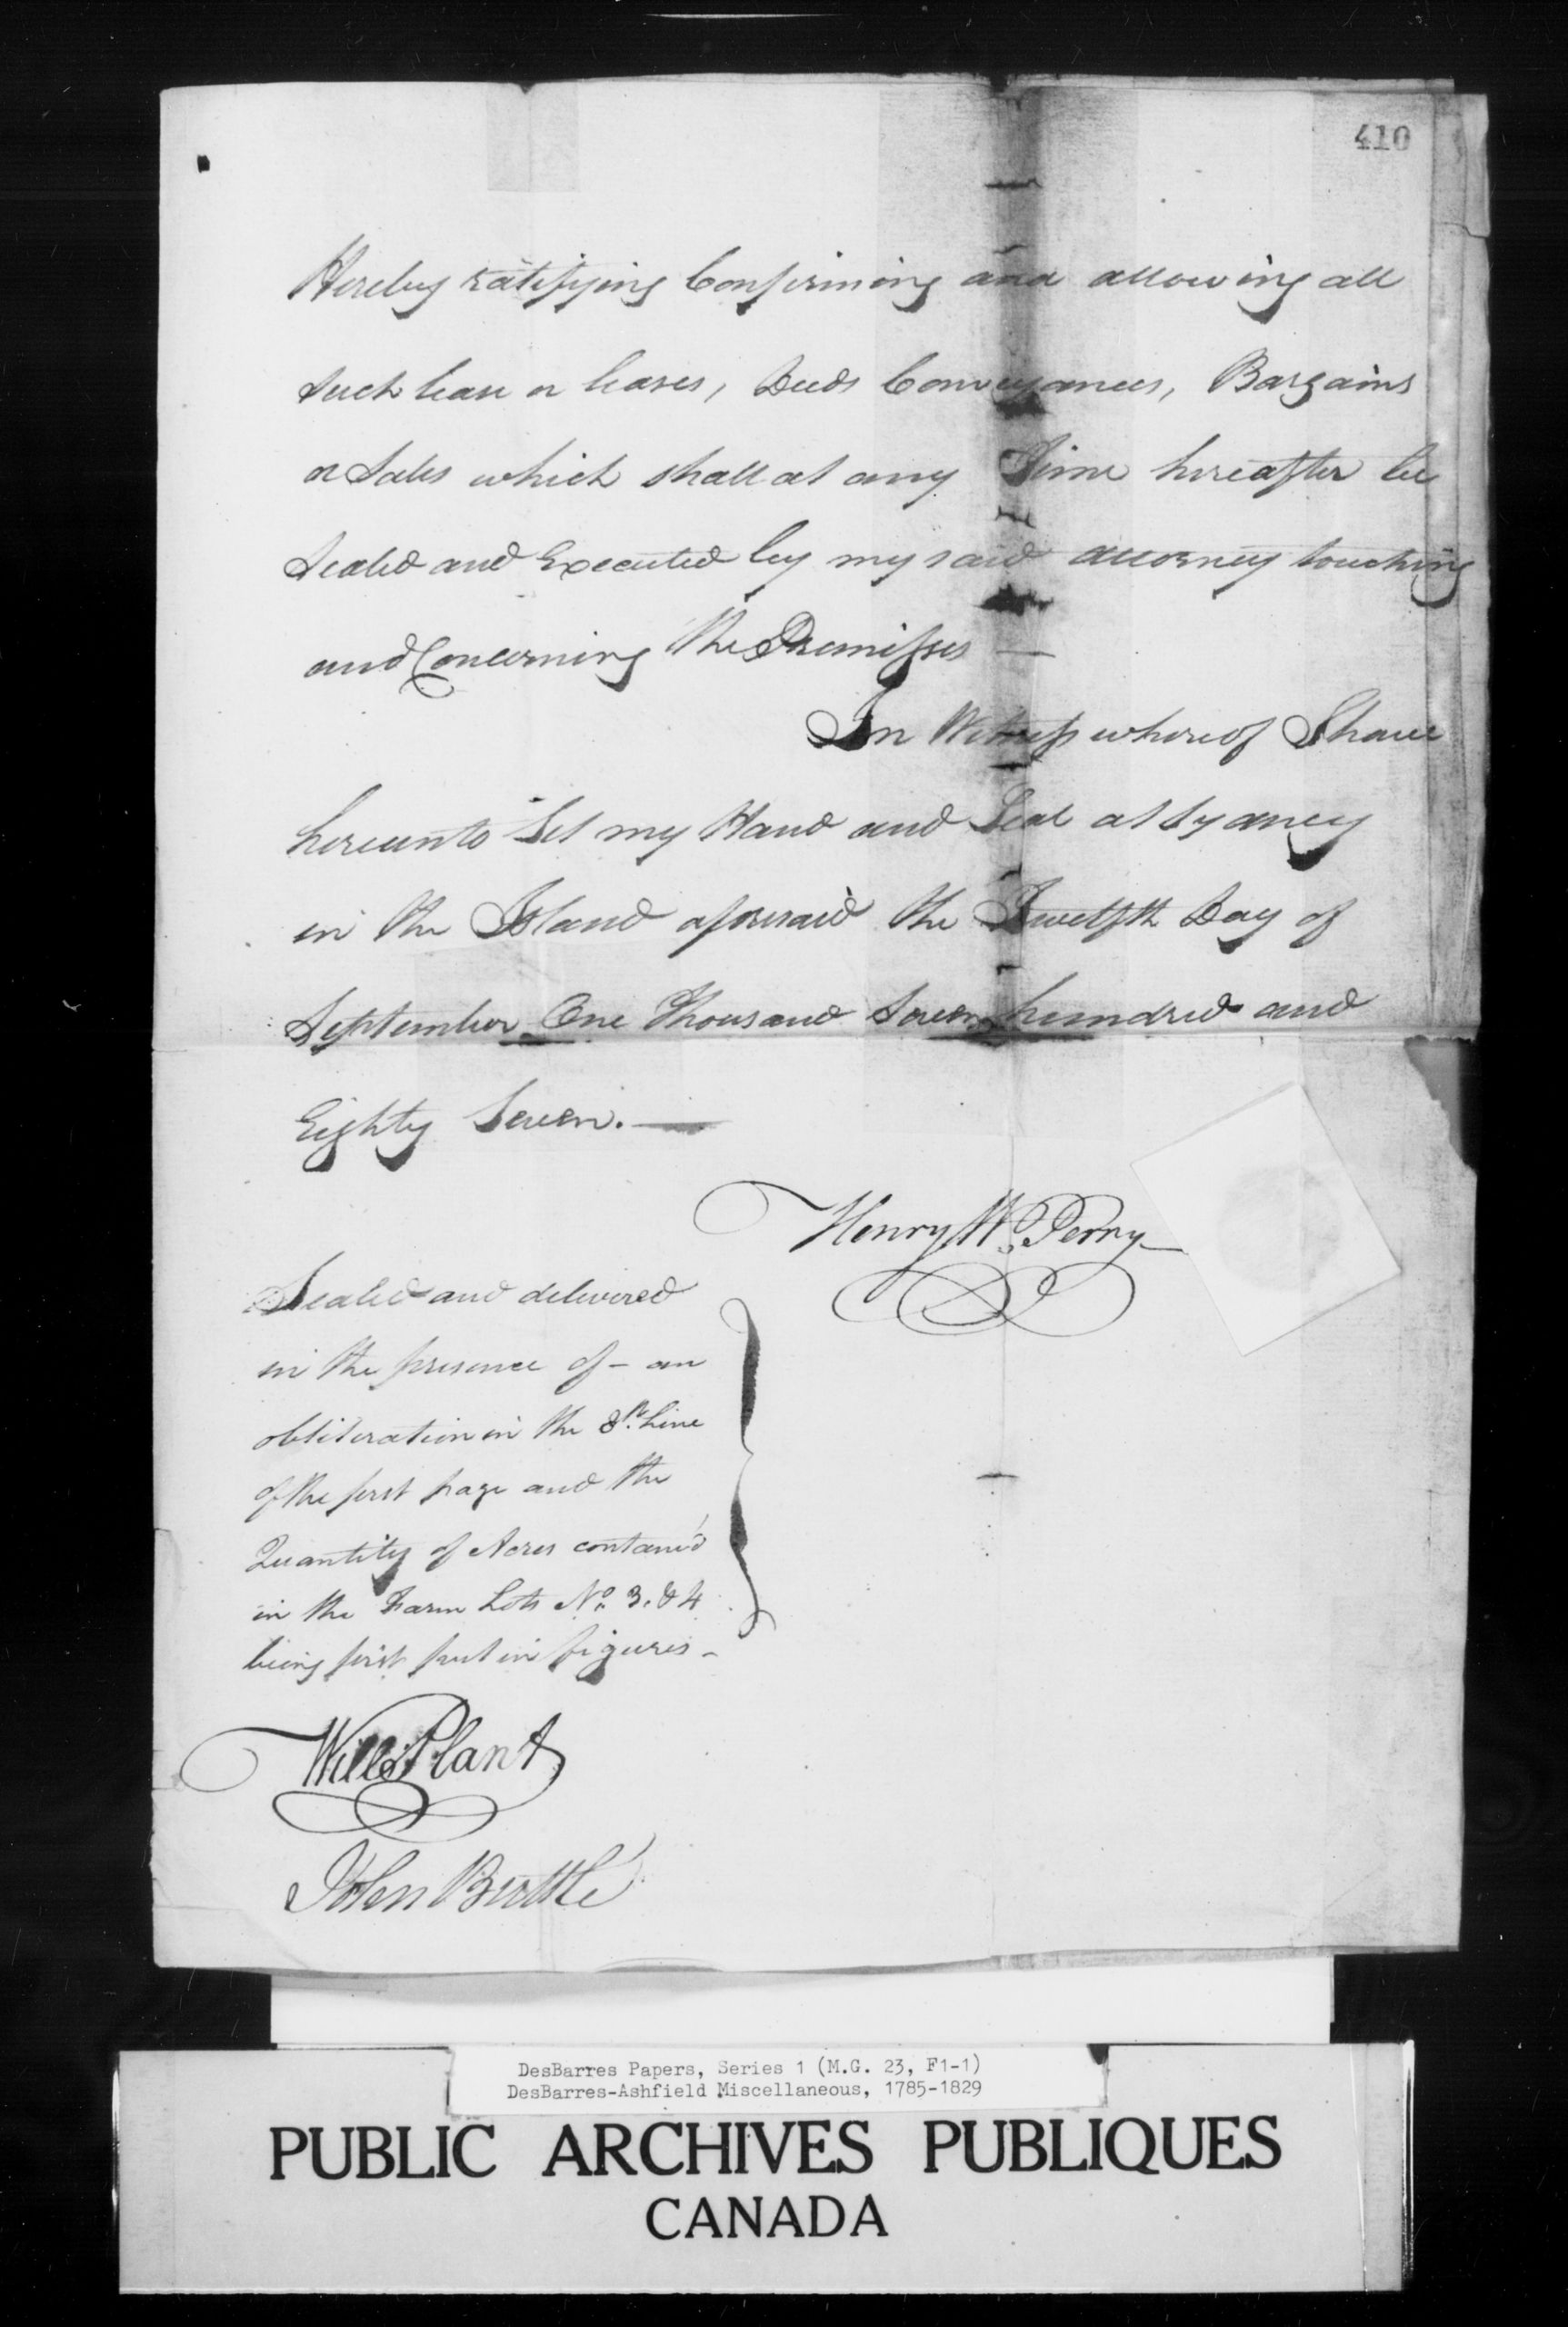 410
Hereby ratifying Confirming and allowing all
Such lease or leases, Deeds Conveyances, Bargains
or Sales which shall at any Time hereafter be
Sealed and Executed by my said attorney touching
and Concerning the Premisses —
In Witness whereof I have
hereunto Set my Hand and Seal at Sydney
in the Island aforesaid the Twelfth Day of
September One Thousand Seven hundred and
Eighty Seven. —
Henry Wm. Perry
Sealed and delivered
in the presence of - an
obliteration in the 8th. Line
of the first page and the
Quantity of Acres contain'd
in the Farm Lots No. 3. & 4
being first put in figures -
Willm Plant
John
DesBarres Papers, Series 1 (M.G. 23, F1-1)
DesBarres-Ashfield Miscellaneous, 1785-1829
PUBLIC ARCHIVES PUBLIQUES
CANADA